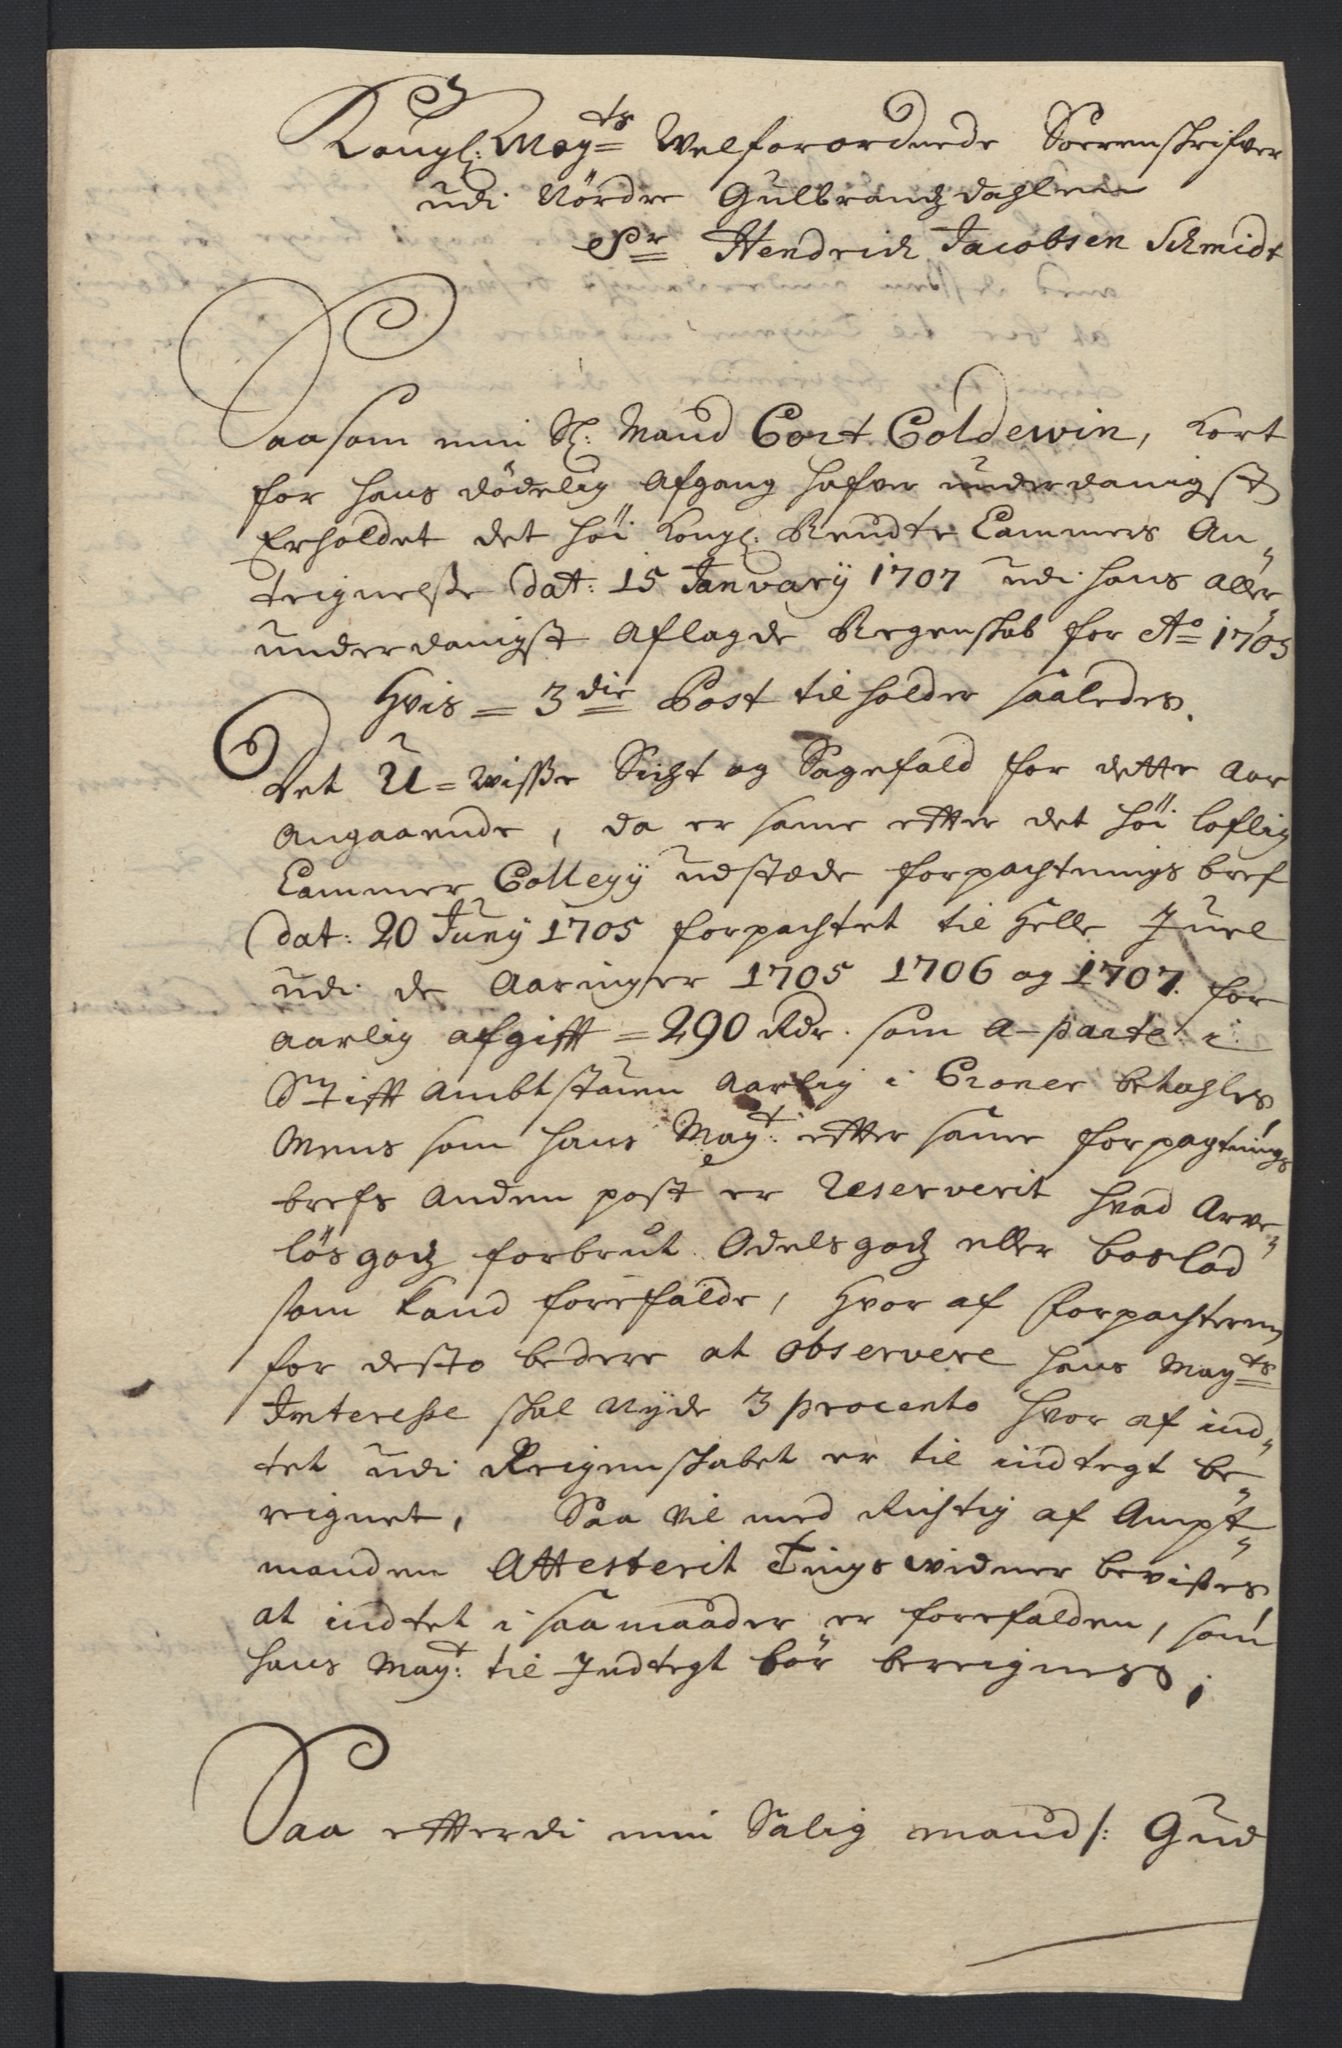 Kongl: May.ts Welforordnede Sorrenskrifver
udi Nördre Gulbrandzdahlen
Sr Hendrich Jacobsen Schmidt
Saasom min Sl: Mand Cort Coldewin, kort
for hans dödelig Afgang hafver underdanigst
Erholdet det höi Kongl: Rendte Cammers An„
teignelsse dat: 15 Januarij 1707 udi hans aller„
underdanigst aflagde Regenskab for Ao 1705
Hvis = 3die Post tilholder saaledes.
Det U=wisse Sicht og Sagefald for dette Aar
Angaaende, da er same efter det höi loflig
Cammer Collegij udstæde forpachtnings bref
dat: 20 Junij 1705 forpachtet til Helle Juel
udi de Aaringer 1705 1706 og 1707. for
aarlig afgifft = 290 Rdr. som a-parte i
Stifft Ambtstuen Aarlig i Croner betahles,
Mens som hans May:t efter same forpagtnings
brefs Anden post er Reserverit hvad Arve„
lösgodz forbrut Odelsgodz eller boslod
som kand forefalde, hvor af Forpachteren
for desto bedere at observere hans Mayts
Interesse skal nyde 3 procento hvor af ind„
tet udi Reigenskabet er til indtegt be„
reignet, Saa vil med Richtig af Ampt„
manden Attesterit Tings widner bevises,
at indtet i saamaader er forefalden, som
hans May:t til Indtegt bör bereignes;
Saa efterdi min Salig mand /: Gud